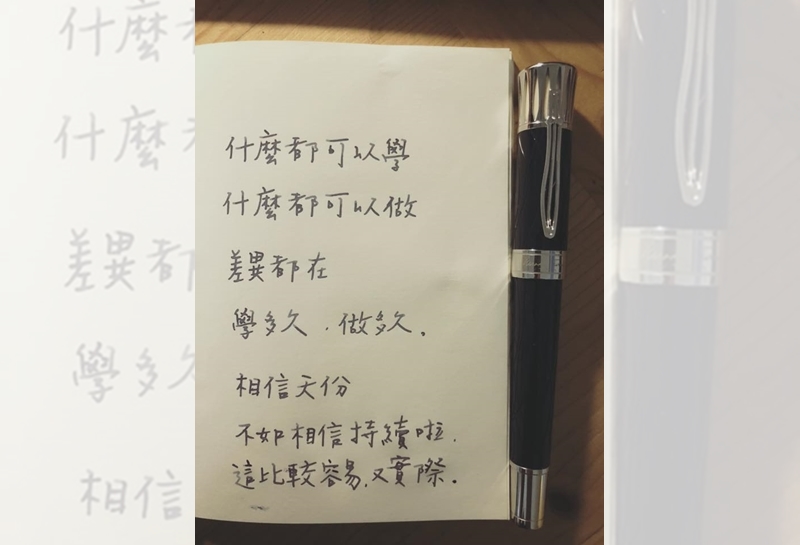 什麼都可以學
什麼都可以做
差異都在
學多久，做多久。
相信天份
不如相信持續啦，
這比較容易，又實際。